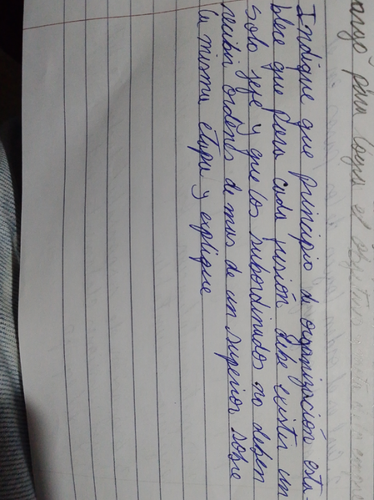 cargo para lograr el objetivo
Indique que principio de organización esta-
blece que para cada función debe existir un
solo jefe y que los subordinados no deben
recibir ordenes de mas de un superior sobre
la misma etapa y explique